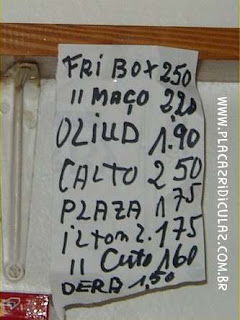 FRI BOX 250
11 MAÇO 2,20
OLIUD 1.90
CALTO 2 50
PLAZA 175
iLTOM 2. 175
11 CUTO 160
DERA 1,50
WWW.PLACAZRIDICULAZ.COM.BR